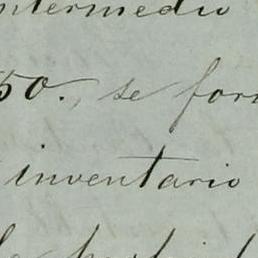 intermedio
50., se for
inventario